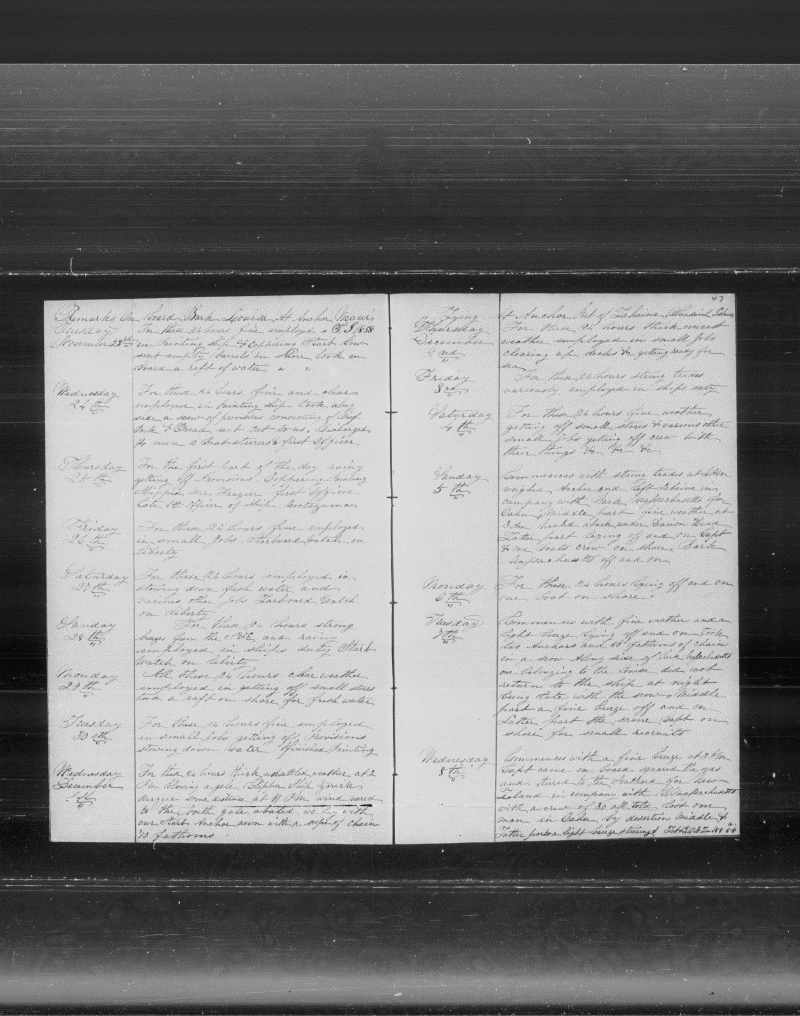 Remarks On Board Bark Louisa At Anchor Maui
Tuesday For these 24 hours fine employed S. I. 1858
November 23rd in Painting ship & Repairing Starb bow
sent empty barrels on shore took on
board a raft of water " "
Wednesday For these 24 hours fine and clear
24th employed in Painting ship took along
side a scow of provisions consisting of Beef
Pork & Bread sent out to us, Discharged
4 men 2 Boatsteerers & first Officer
Thursday For the first part of the day rainy
25th getting off Provisions Coppering Painting
Shipped Mr Frazier first Officer
Late 4th Officer of ship
Friday For these 24 hours fine employed
26th in small Jobs starboard Watch on
liberty
Saturday For these 24 hours employed in
27th stowing down fresh water and
various other jobs Larboard Watch
on liberty
Sunday For these 24 hours strong
28th breezes from the NE and rainy
employed in ships duty Starb
Watch on liberty
Monday All these 24 hours clear weather
29th employed in getting off small stores
took a raft on shore for fresh water
Tuesday For these 24 hours fine employed
30th in small Jobs getting off Provisions
stowing down water finished Painting
Wednesday For these 24 hours thick unsettled weather at 2
December PM blowing a gale Ship
1st dragged some distance at 11 PM wind veered
to the South gale abated we lay with
our Starb Anchor down with a scope of chain
70 fathoms
47
" Lying At Anchor Port of Lahaina, Sandwich Islands
Thursday For these 24 hours thick overcast
December weather employed in small jobs
2nd clearing up decks &c getting ready for
sea
Friday For these 24 hours strong trades
3rd variously employed in ships duty
Saturday For these 24 hours fine weather
4th getting off small stores & various other
small jobs getting off crew with
their things &c &c &c
Sunday Commences with strong trades at
5th weighed Anchor and left Lahaina in
company with Bark Massachusetts for
Oahu Middle part fine weather at
3 Am hauled aback under Diamon Head
Latter part laying off and on Capt
& one boats crew on shore Bark
Massachusetts off and on
Monday For these 24 hours lying off and on
6th one boat on shore
Tuesday Commences with fine weather and a
7th light breeze lying off and on took
two Anchors and 60 fathoms of chain
in a scow along side of Bark Massachusetts
one belonging to the Louisa did not
return to the ship at night
being late with the scow Middle
part a fine breeze off and on
Latter part the same Capt on
shore for small recruits
Wednesday Commences with a fine breeze at 2 PM
8th Capt came on board squared the yds
and steered to the Southrd for New
Zeland in company with Massachusetts
with a crew of 30 all told Lost one
man in Oahu by desertion Middle &
Latter parts a light breeze steering S